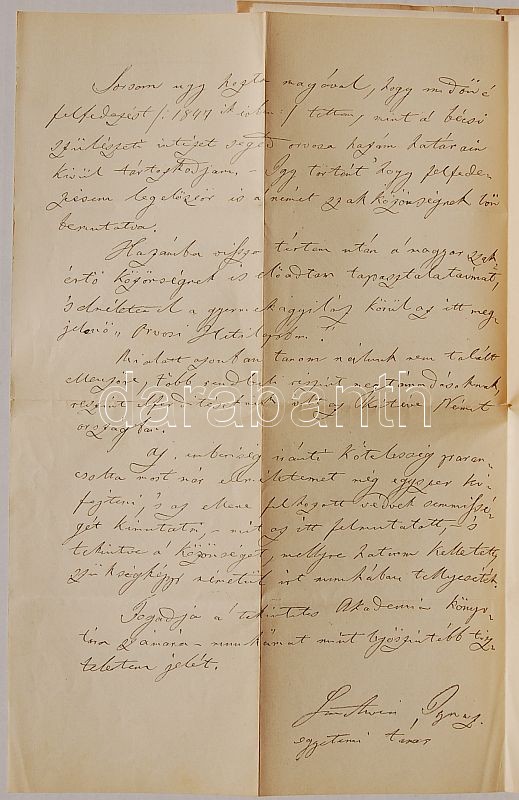 Sorsom ugy hozta magával, hogy midőn é
felfedezést /: 1847 ik évben :/ tettem, mint a bécsi
szülészeti intézet segéd orvosa hazám határain
kivül tartozkodjam, – Igy történt hogy felfede-
zésem legelőször is a német szakközönségnek lőn
bemutatva.
Hazámba vissza tértem után a magyar szak
értő közönségnek is előadtam tapasztalataimat,
's elméletemet a gyermekágyi láz körül az itt meg-
jelenő „Orvosi Hetilapban."
Mialatt azonban tanom nálunk nem talált
ellenzőre, több rendbeli részint megtámadásoknak
részint elferdítéseknek lőn az kitéve Német
országban.
Az emberiség iránti kötelesség paran-
csolta most már elméletemet még egyszer ki-
fejteni, 's az ellene felhozott védvek semmissé-
gét kimutatni, – mit az itt felmutatott, 's
tekintve a közönséget, mellyre hatnom kelletett,
szükségképp németül irt munkában tellyesíték.
Fogadja a' tekintetes Akademia könyv-
tára számára – munkámat mint legőszintébb tisz-
teletem jelét.
Semmelweis Ignaz
egyetemi tanár
darabanth